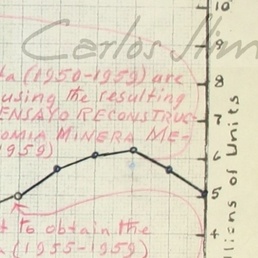 Carlos Slim
10
9
a (1950-1959) are
8
using the resulting
ENSAYO RECONSTRUC-
7
OMIA MINERA ME-
1959)
6
5
t to obtain the
4
a (1955-1959)
llions of Units